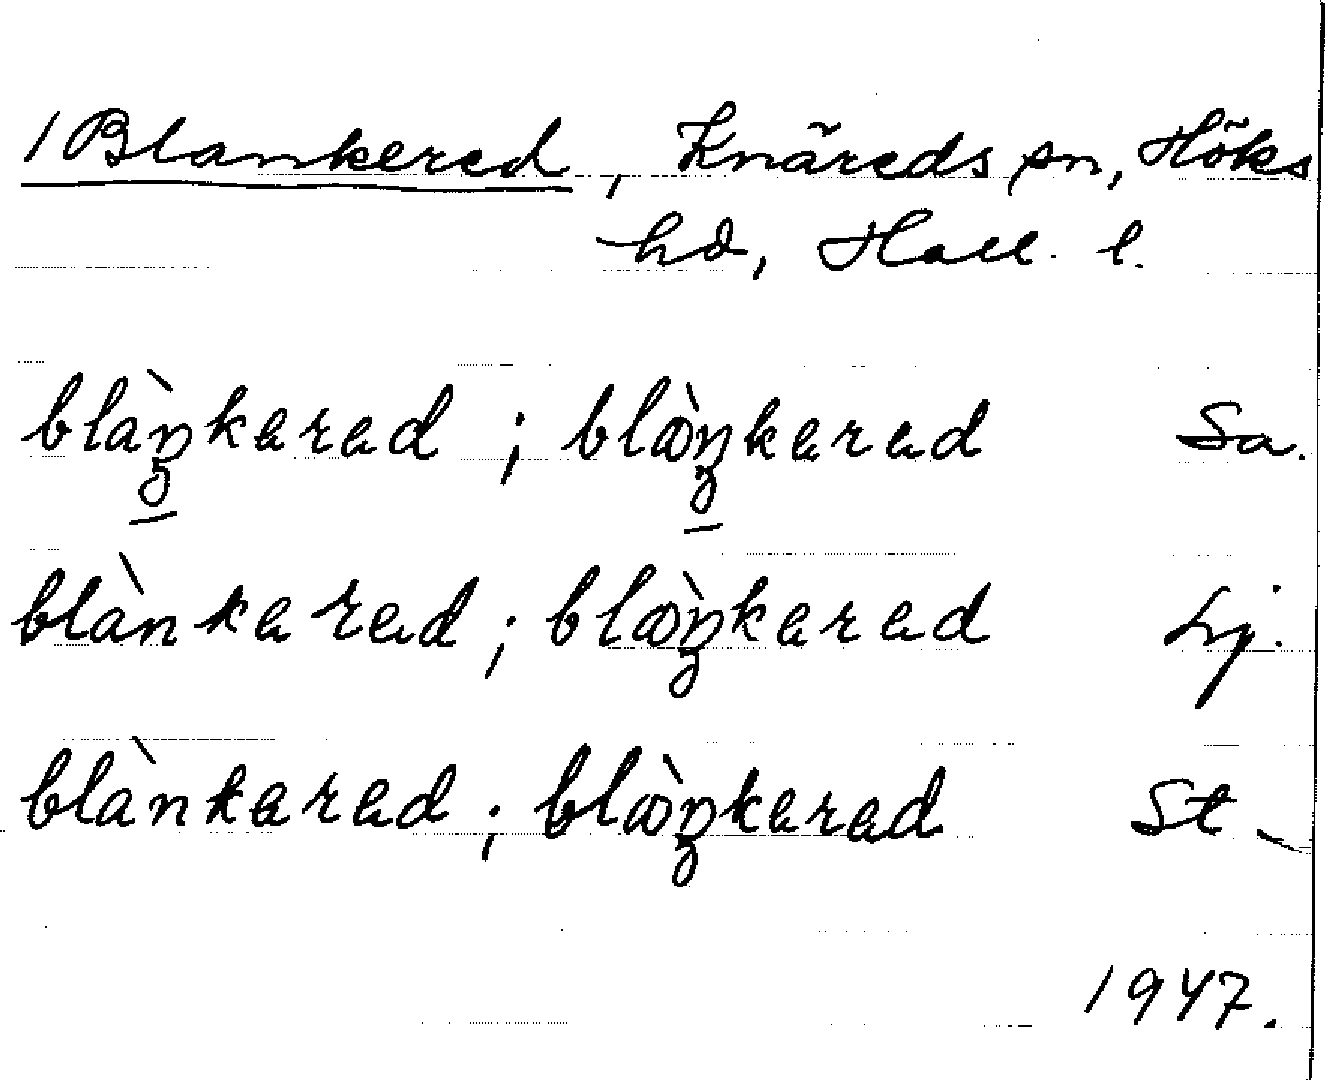 1 Blankered, Knäreds sn, Höks
hd, Hall. l.
blàŋkered ; blàŋkered Sa.
blànkered ; blàŋkered Lj.
blànkered ; blàŋkered St
1947.